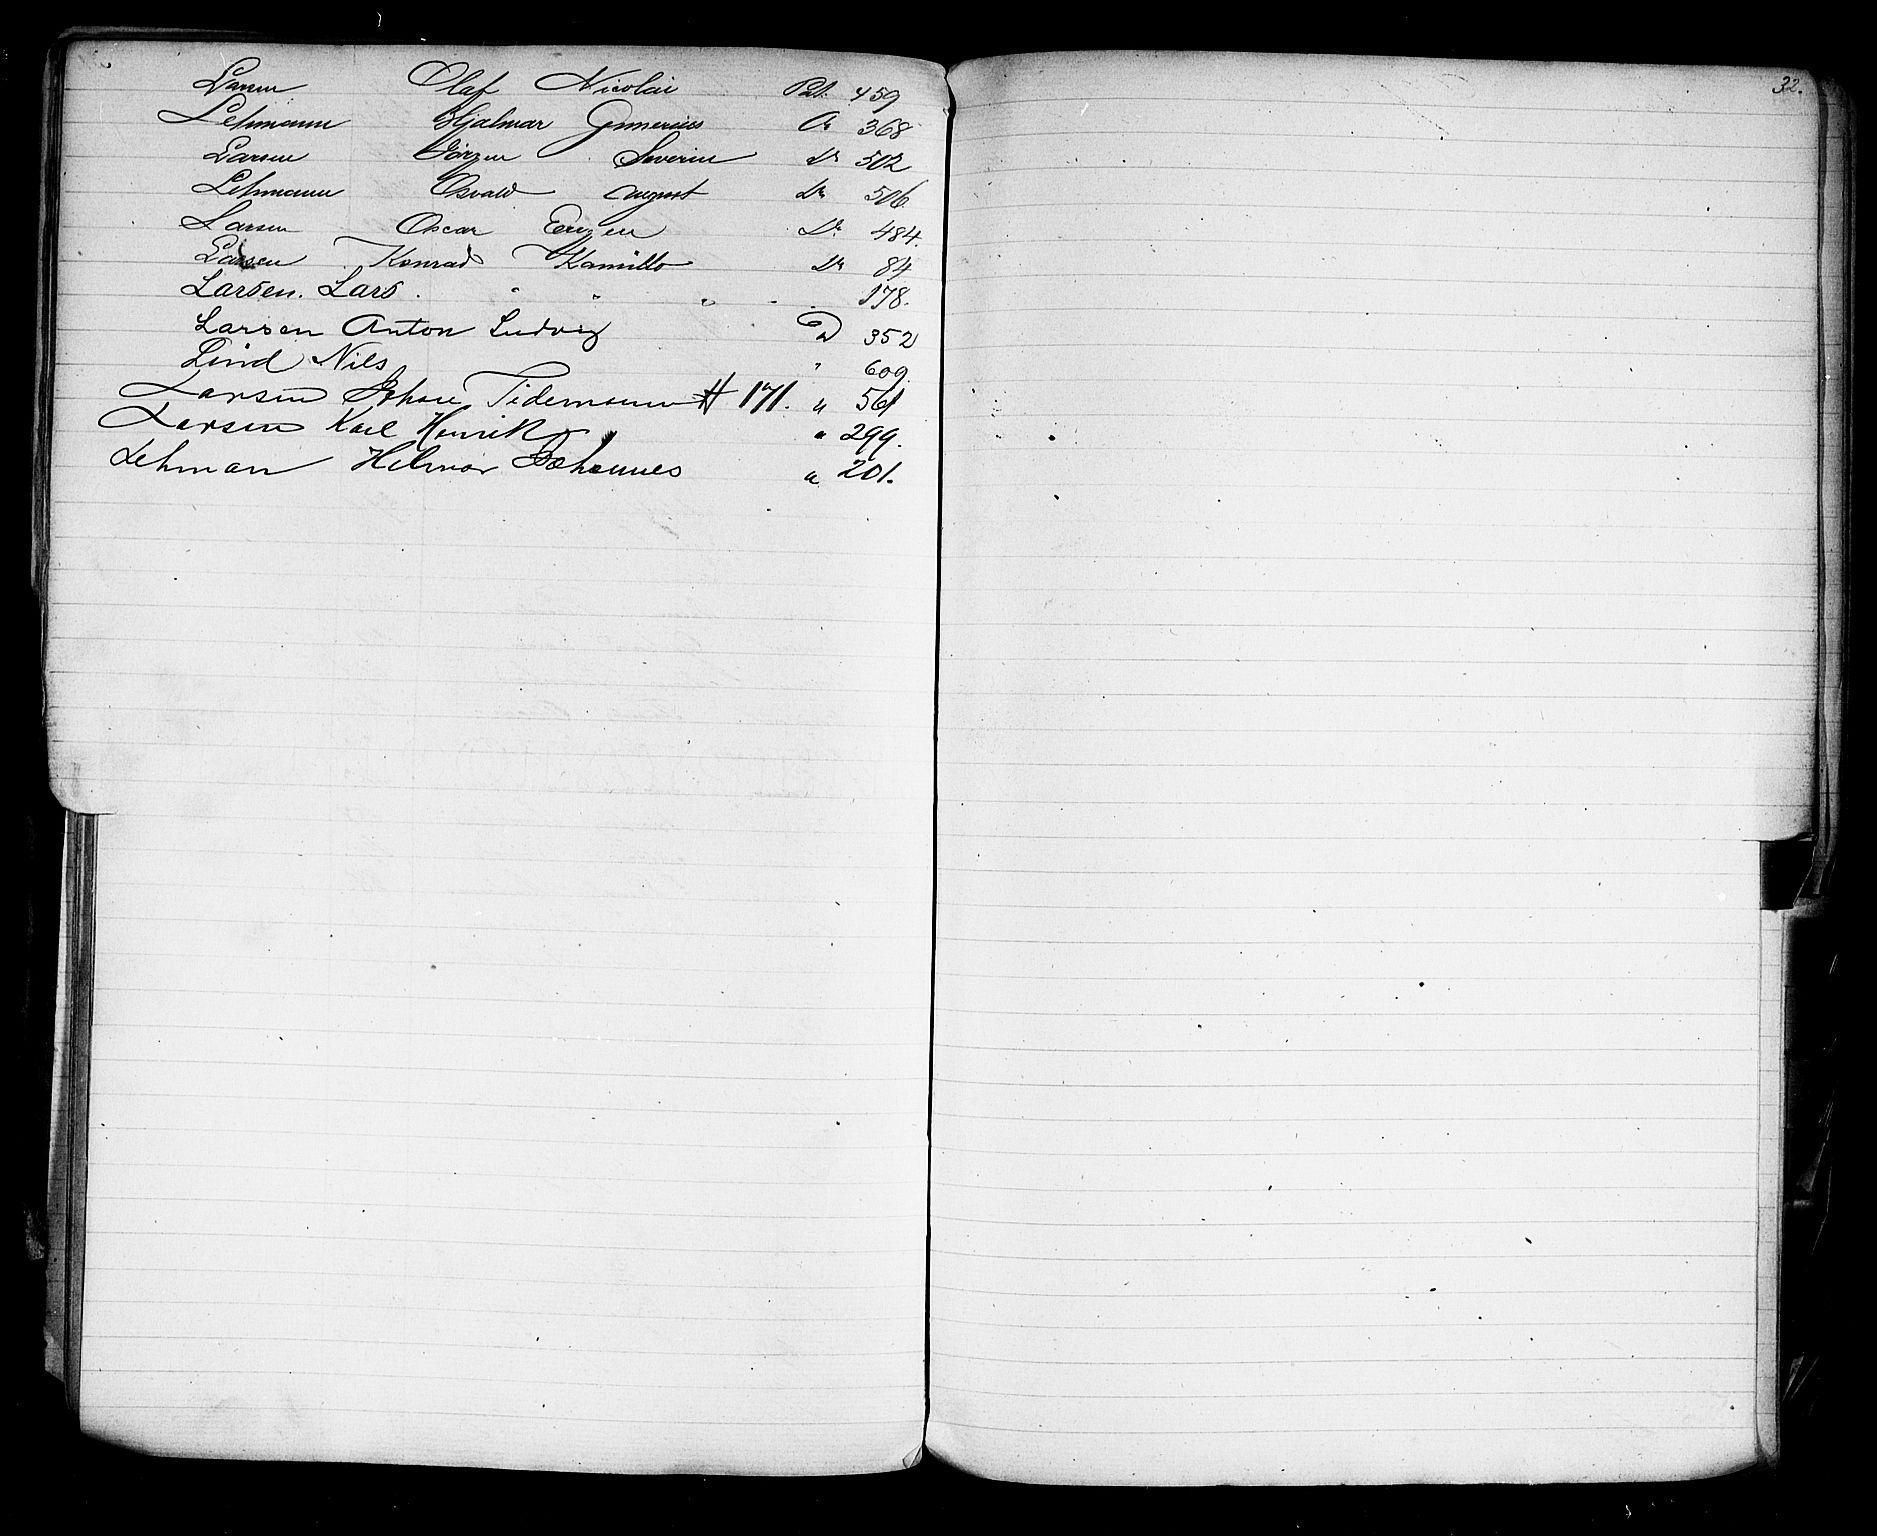 Larsen Olaf Nicolai Pat. 459
Lehmann Hjalmar Gunerius 368
Larsen Jørgen Severin Do 502
Lehmann Osvald August Do 506
Larsen Oscar Do 484.
Larsen Konrad Kamillo Do 84
Larsen. Lars. " " " 178.
Larsen Anton Ludvig D 352
Lind Nils " 609.
Larsen Johan Tidemann # 171. " 561
Larsen Karl Henrik " 299.
Lehman Helmar Johannes " 201.
32.